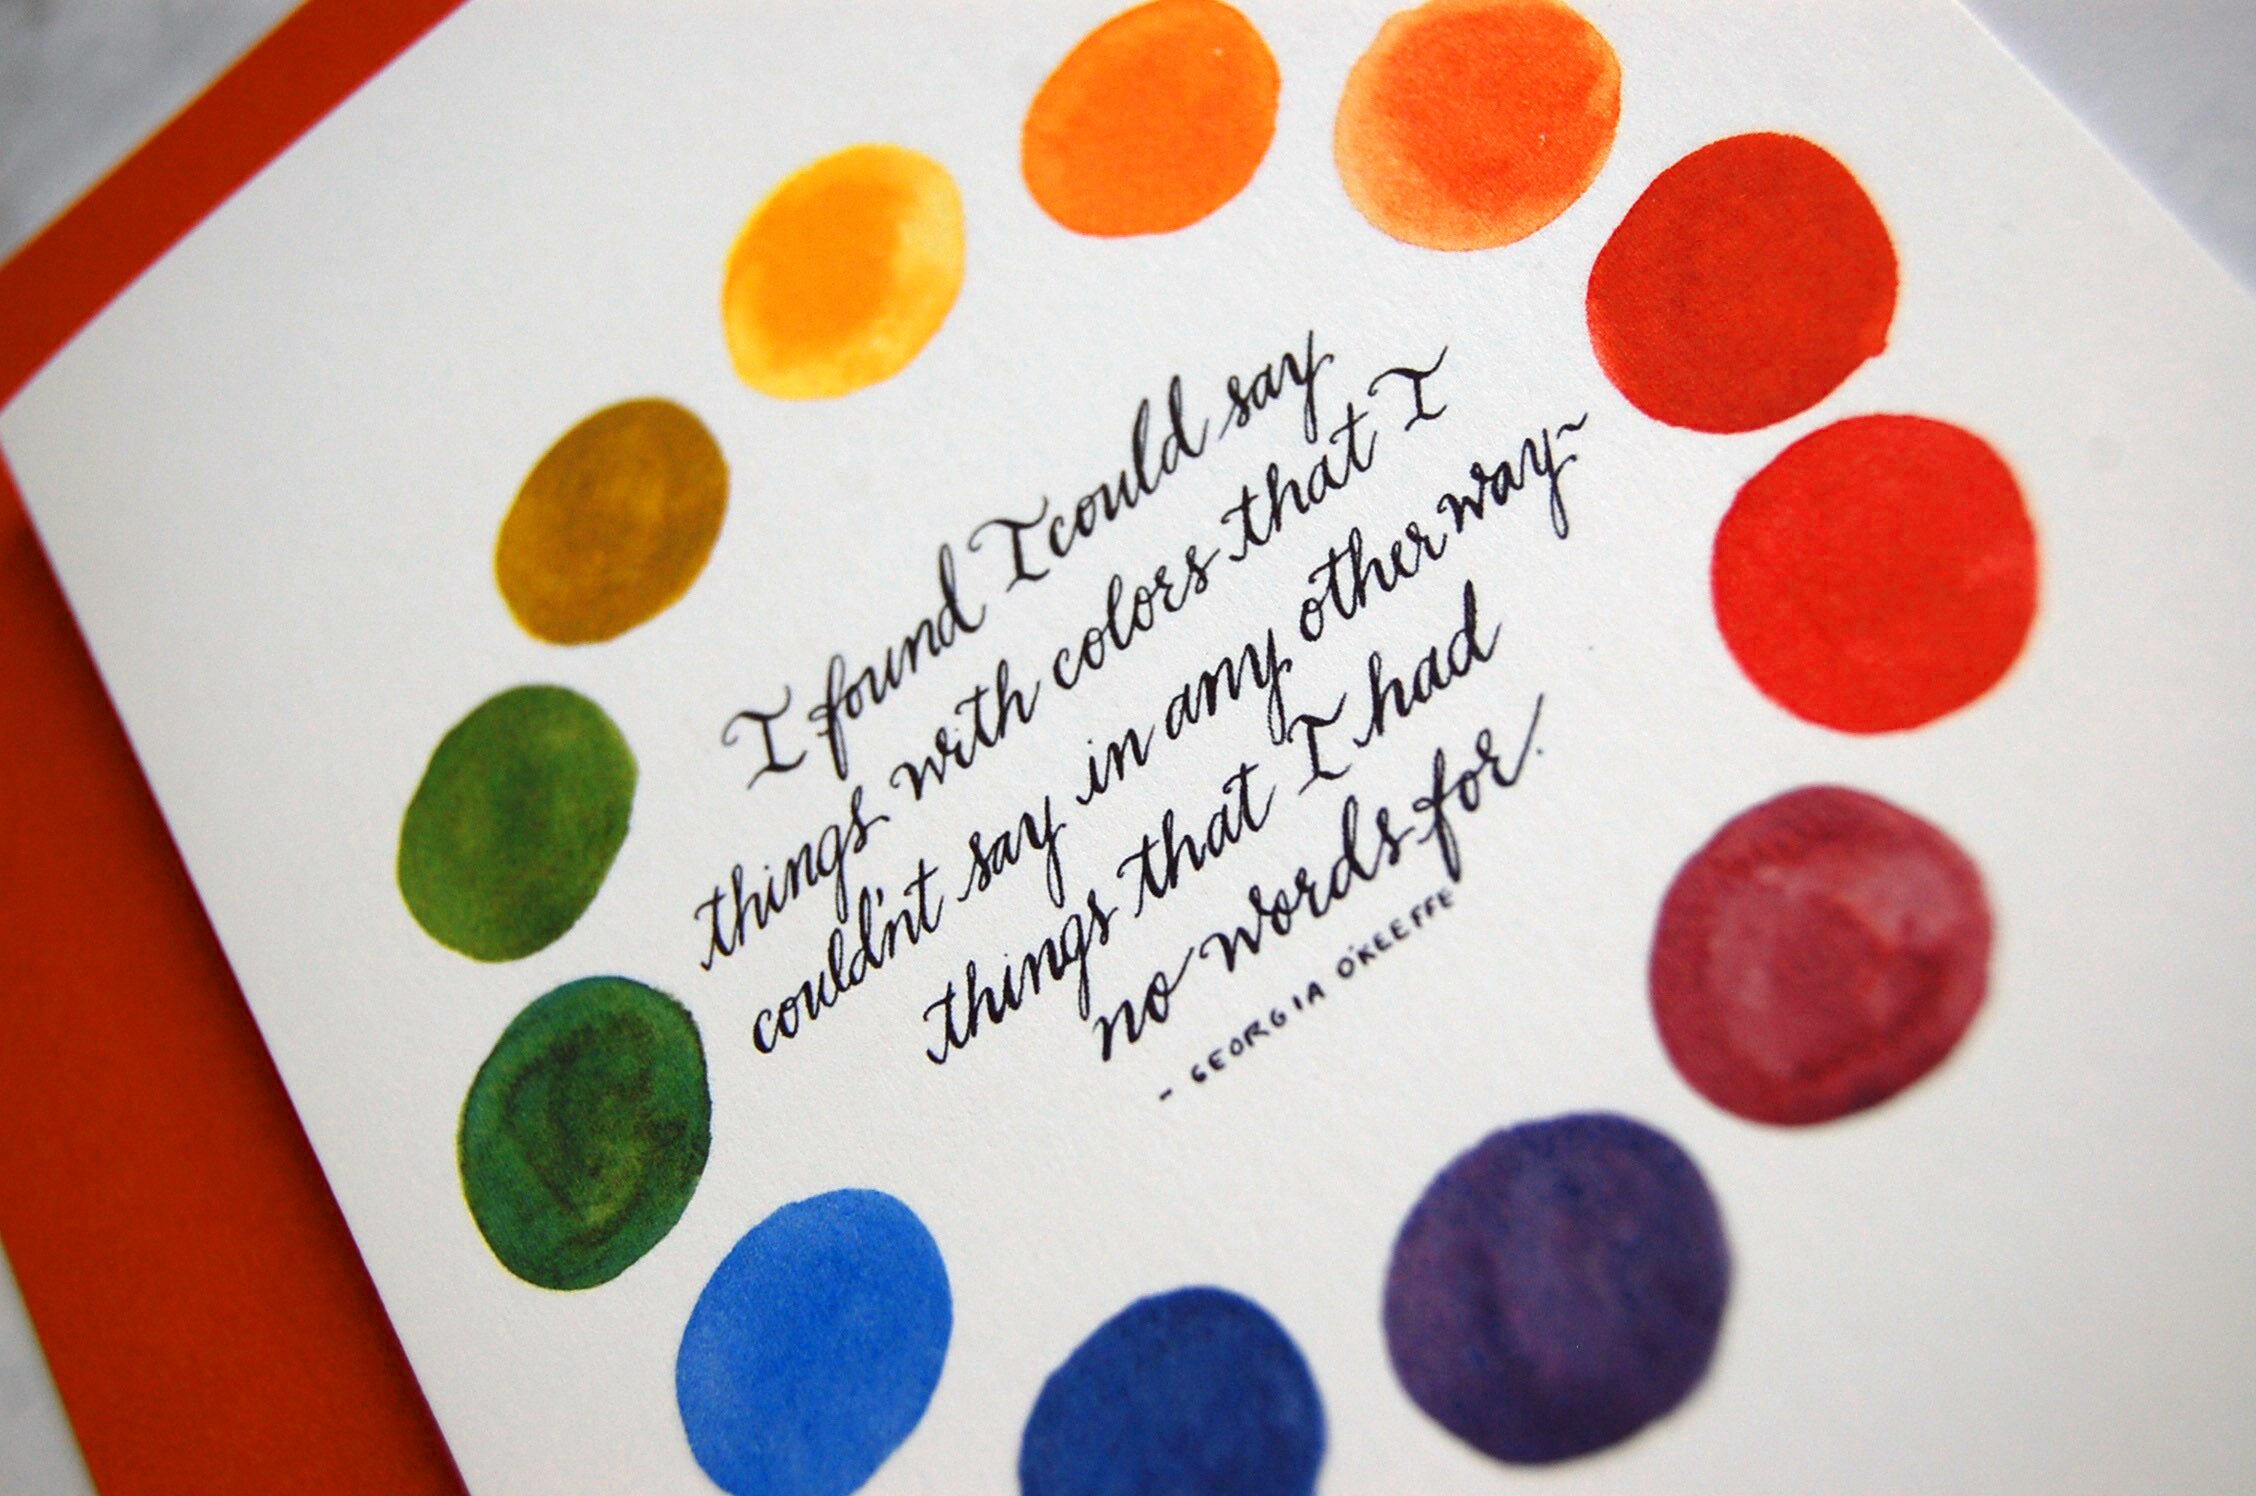 I found I could say
things with colors that I
couldn't say in any other way~
things that I had
no words for.
- GEORGIA O'KEEFFE